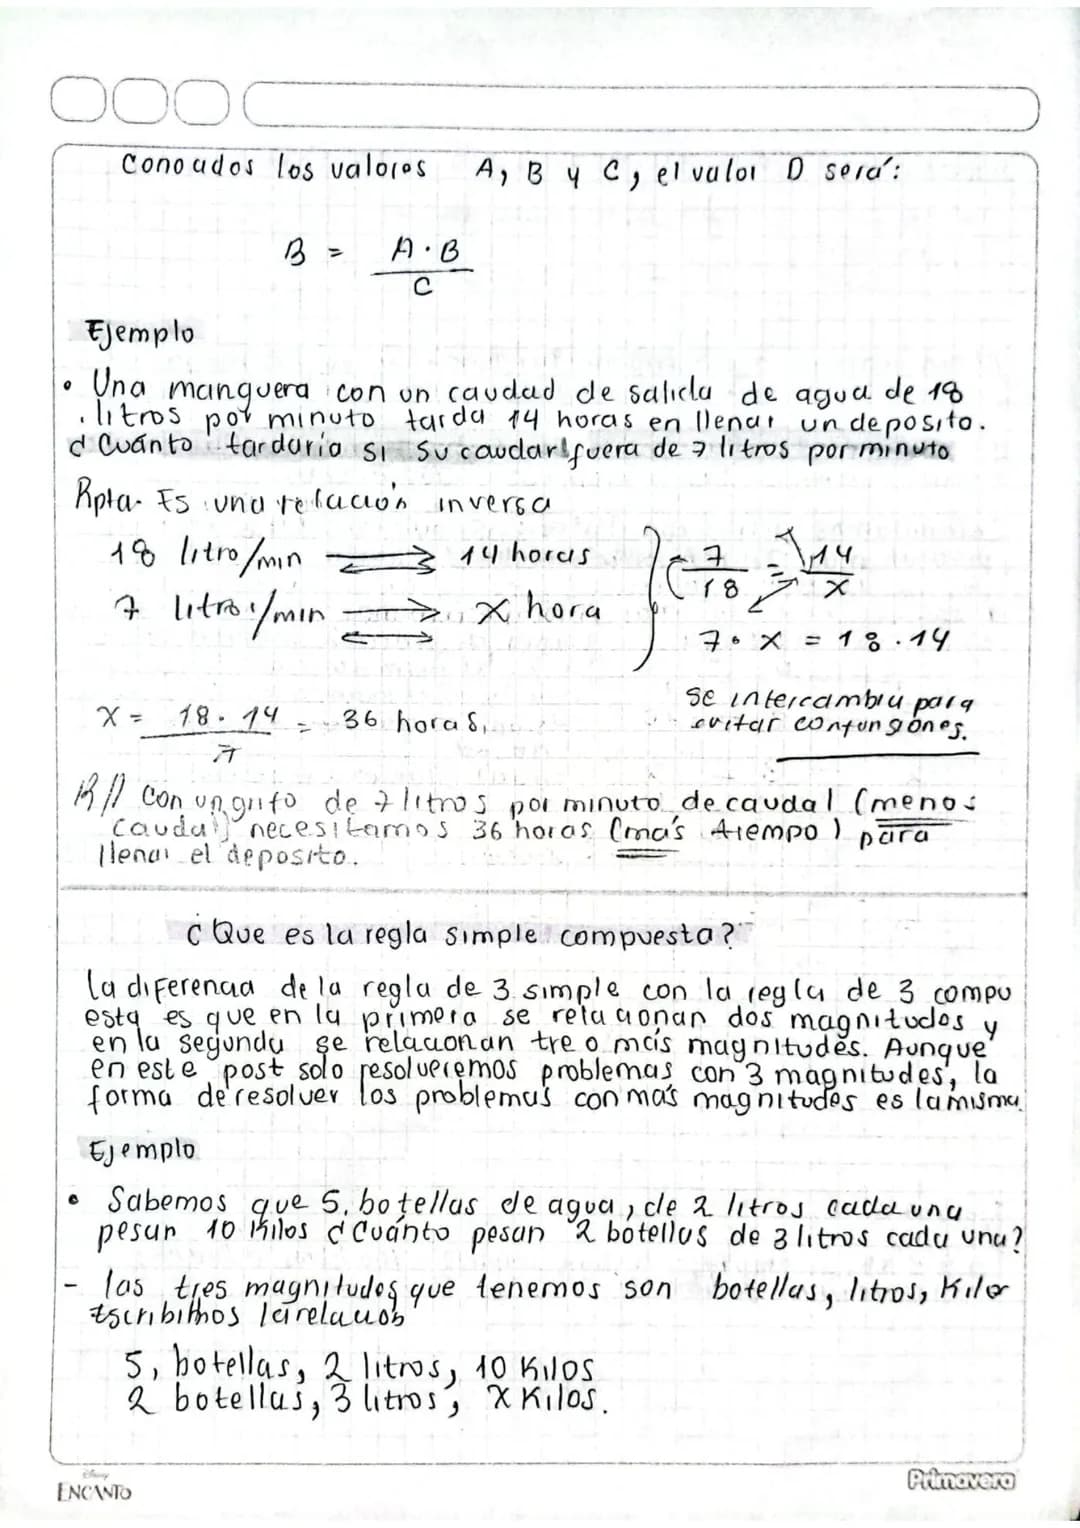 Conocidos los valores A, B y C, el valor D será:
B = A·B / C
Ejemplo
• Una manguera con un caudad de salida de agua de 18
litros por minuto tarda 14 horas en llenar un deposito.
¿Cuánto tardaria si su caudar fuera de 7 litros por minuto
Rpta- Es una relación inversa
18 litro/min ⇄ 14 horas
7 litros/min ⇄ x hora
7/18 = 14/x
7 · x = 18 · 14
se intercambia para
evitar confungiones.
x = 18 · 14 / 7 = 36 horas,
R// Con un grifo de 7 litros por minuto de caudal (menos
caudal) necesitamos 36 horas (más tiempo) para
llenar el deposito.
¿Que es la regla simple compuesta?
La diferencia de la regla de 3 simple con la regla de 3 compu
esta es que en la primera se relacionan dos magnitudes y
en la segunda se relacionan tre o más magnitudes. Aunque
en este post solo resolveremos problemas con 3 magnitudes, la
forma de resolver los problemas con más magnitudes es la misma.
Ejemplo
• Sabemos que 5, botellas de agua, de 2 litros cada una
pesan 10 Kilos ¿Cuánto pesan 2 botellas de 3 litros cada una?
- las tres magnitudes que tenemos son botellas, litros, Kilos
Escribimos la relación
5, botellas, 2 litros, 10 Kilos
2 botellas, 3 litros, x Kilos.
Disney
ENCANTO
Primavera